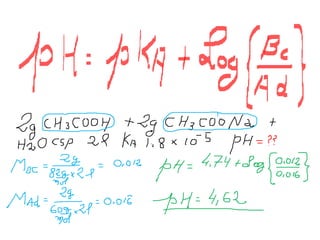 pH = pKA + Log { Bc / Ad }
2g CH3COOH + 2g CH3COONa +
H2O csp 2l KA 1.8 x 10-5 pH = ??
MBC = 2g / 82g/mol x 2l = 0,012
pH = 4,74 + Log { 0.012 / 0,016 }
MAd = 2g / 60g/mol x 2l = 0.016
pH = 4,62